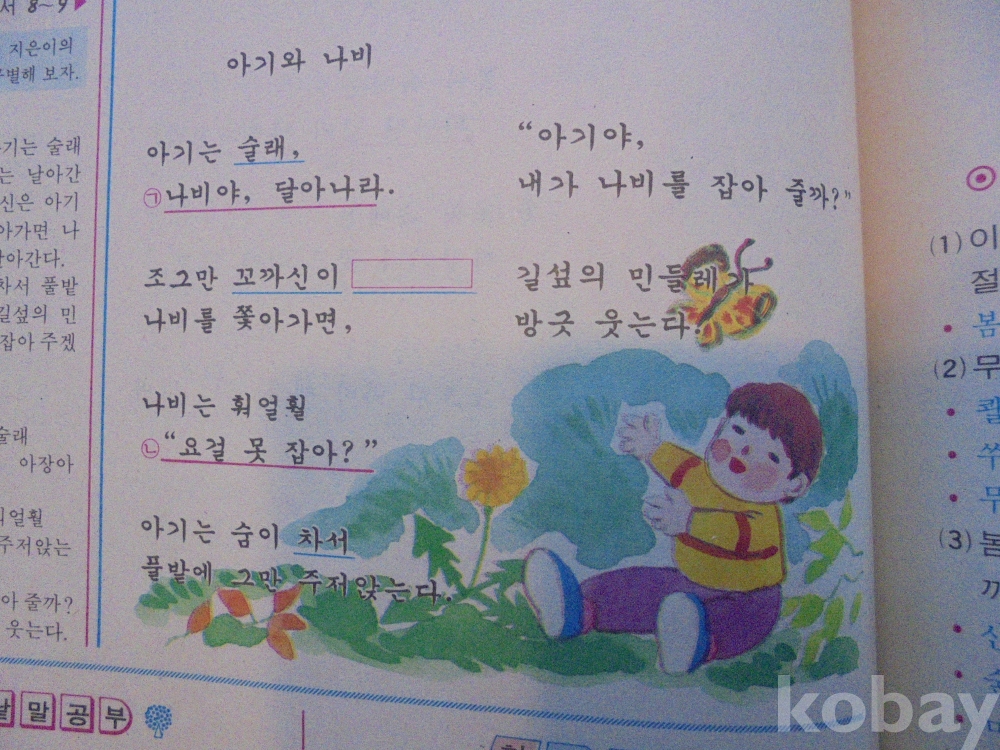 서 8~9
지은이의
별해 보자.
기는 술래
는 날아간
신은 아기
아가면 나
날아간다.
차서 풀밭
길섶의 민
잡아 주겠
술래
아장아
훠얼훨
주저앉는
아 줄까?
웃는다.
아기와 나비
아기는 술래,
㉠나비야, 달아나라.
조그만 꼬까신이
나비를 쫓아가면,
나비는 훠얼훨
㉡“요걸 못 잡아?”
아기는 숨이 차서
풀밭에 그만 주저앉는다.
“아기야,
내가 나비를 잡아 줄까?”
길섶의 민들레가
방긋 웃는다.
말공부
(1) 이
절
• 봄
(2) 무
•
• 쑤
• 무
(3) 봄
끼
• 신
kobay